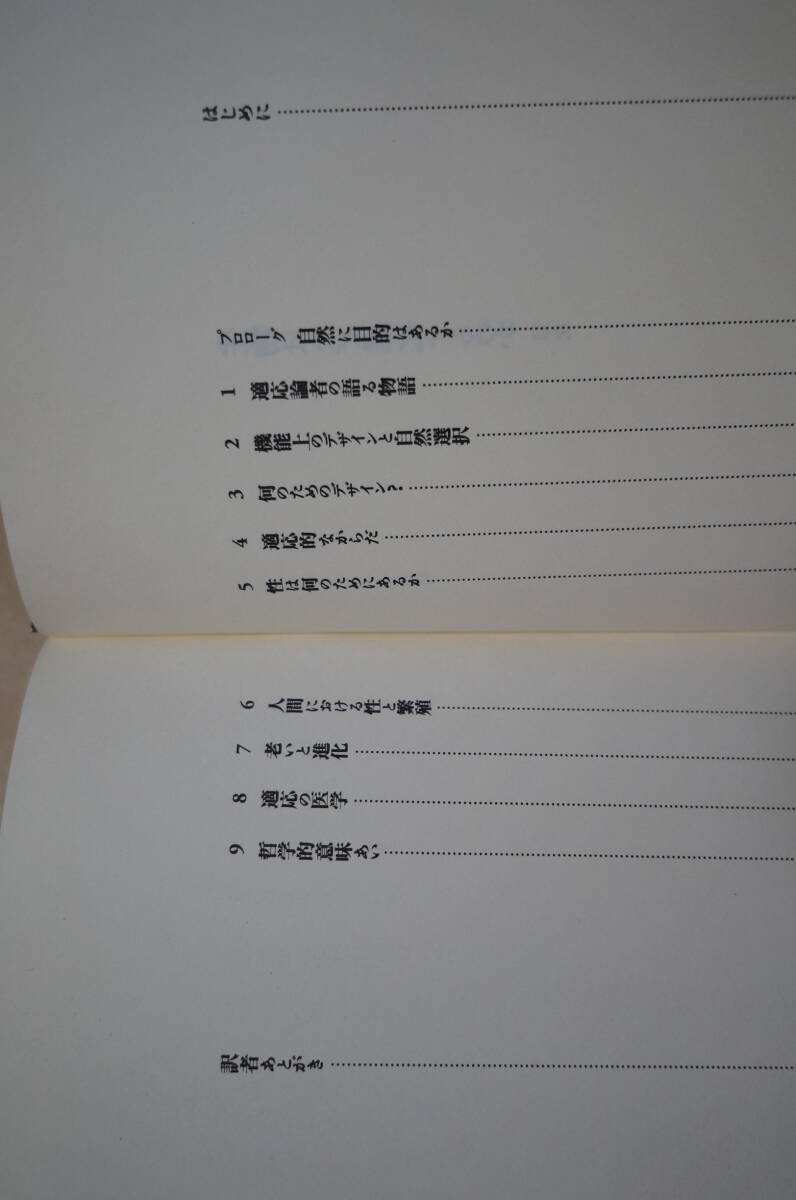 はじめに
プロローグ 自然に目的はあるか
1 適応論者の語る物語
2 機能上のデザインと自然選択
3 何のためのデザイン?
4 適応的なからだ
5 性は何のためにあるか
6 人間における性と繁殖
7 老いと進化
8 適応の医学
9 哲学的意味あい
訳者あとがき